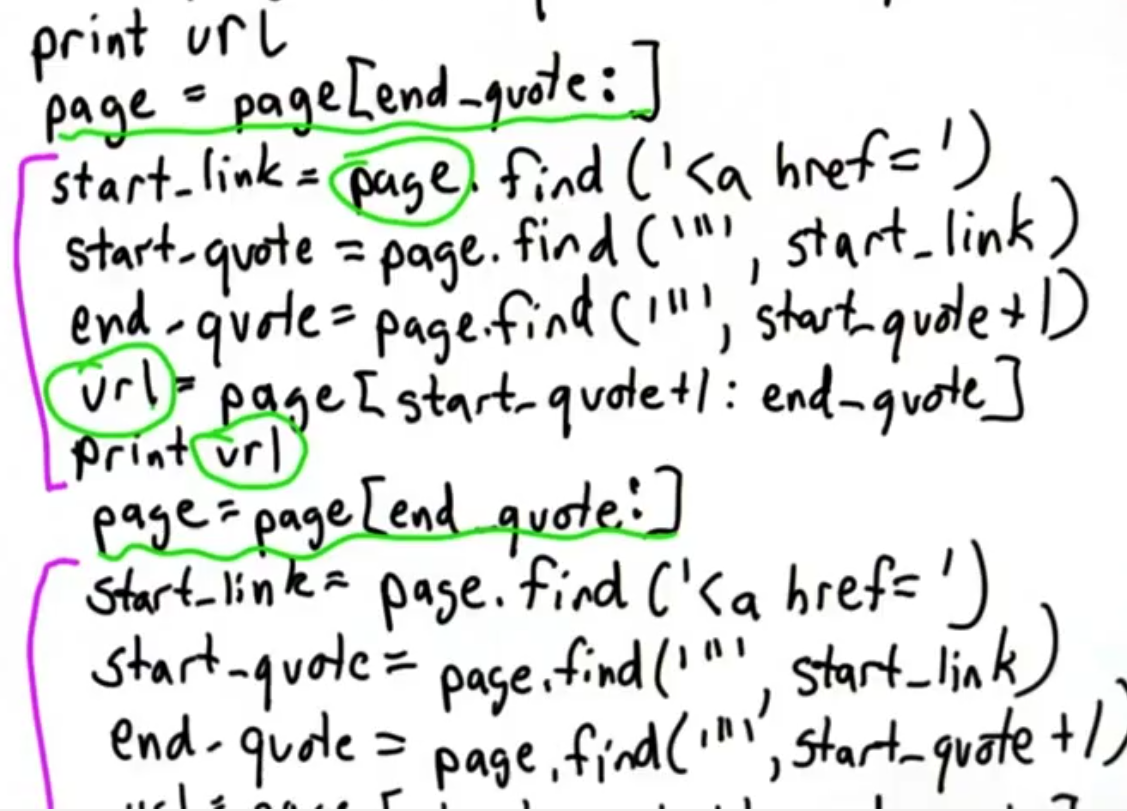 print url
page = page[end_quote:]
start_link = page.find('<a href=')
start_quote = page.find('"', start_link)
end_quote = page.find('"', start_quote+1)
url = page[start_quote+1: end_quote]
print url
page = page[end_quote:]
start_link = page.find('<a href=')
start_quote = page.find('"', start_link)
end_quote = page.find('"', start_quote+1)
url = page[